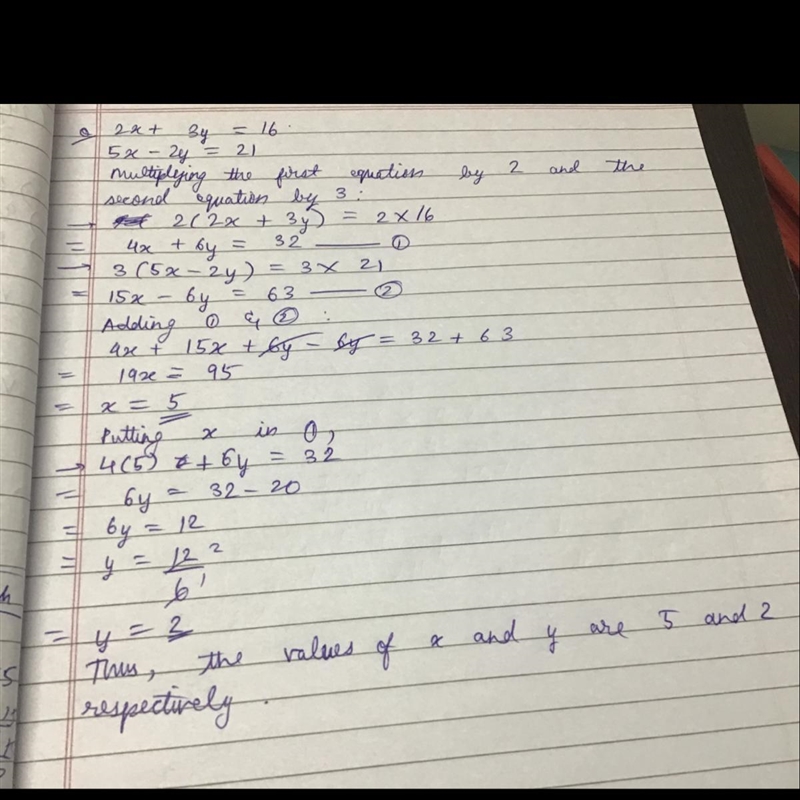 Q 2x + 3y = 16.
5x - 2y = 21
Multiplying the first equation by 2 and the
second equation by 3:
→ 2(2x + 3y) = 2 × 16
= 4x + 6y = 32 —— ①
→ 3(5x - 2y) = 3 × 21
= 15x - 6y = 63 —— ②
Adding ① & ② :
4x + 15x + 6y - 6y = 32 + 63
= 19x = 95
= x = 5
Putting x in ①,
→ 4(5) + 6y = 32
= 6y = 32 - 20
= 6y = 12
= y = 12 2
6 1
= y = 2
Thus, the values of x and y are 5 and 2
respectively.